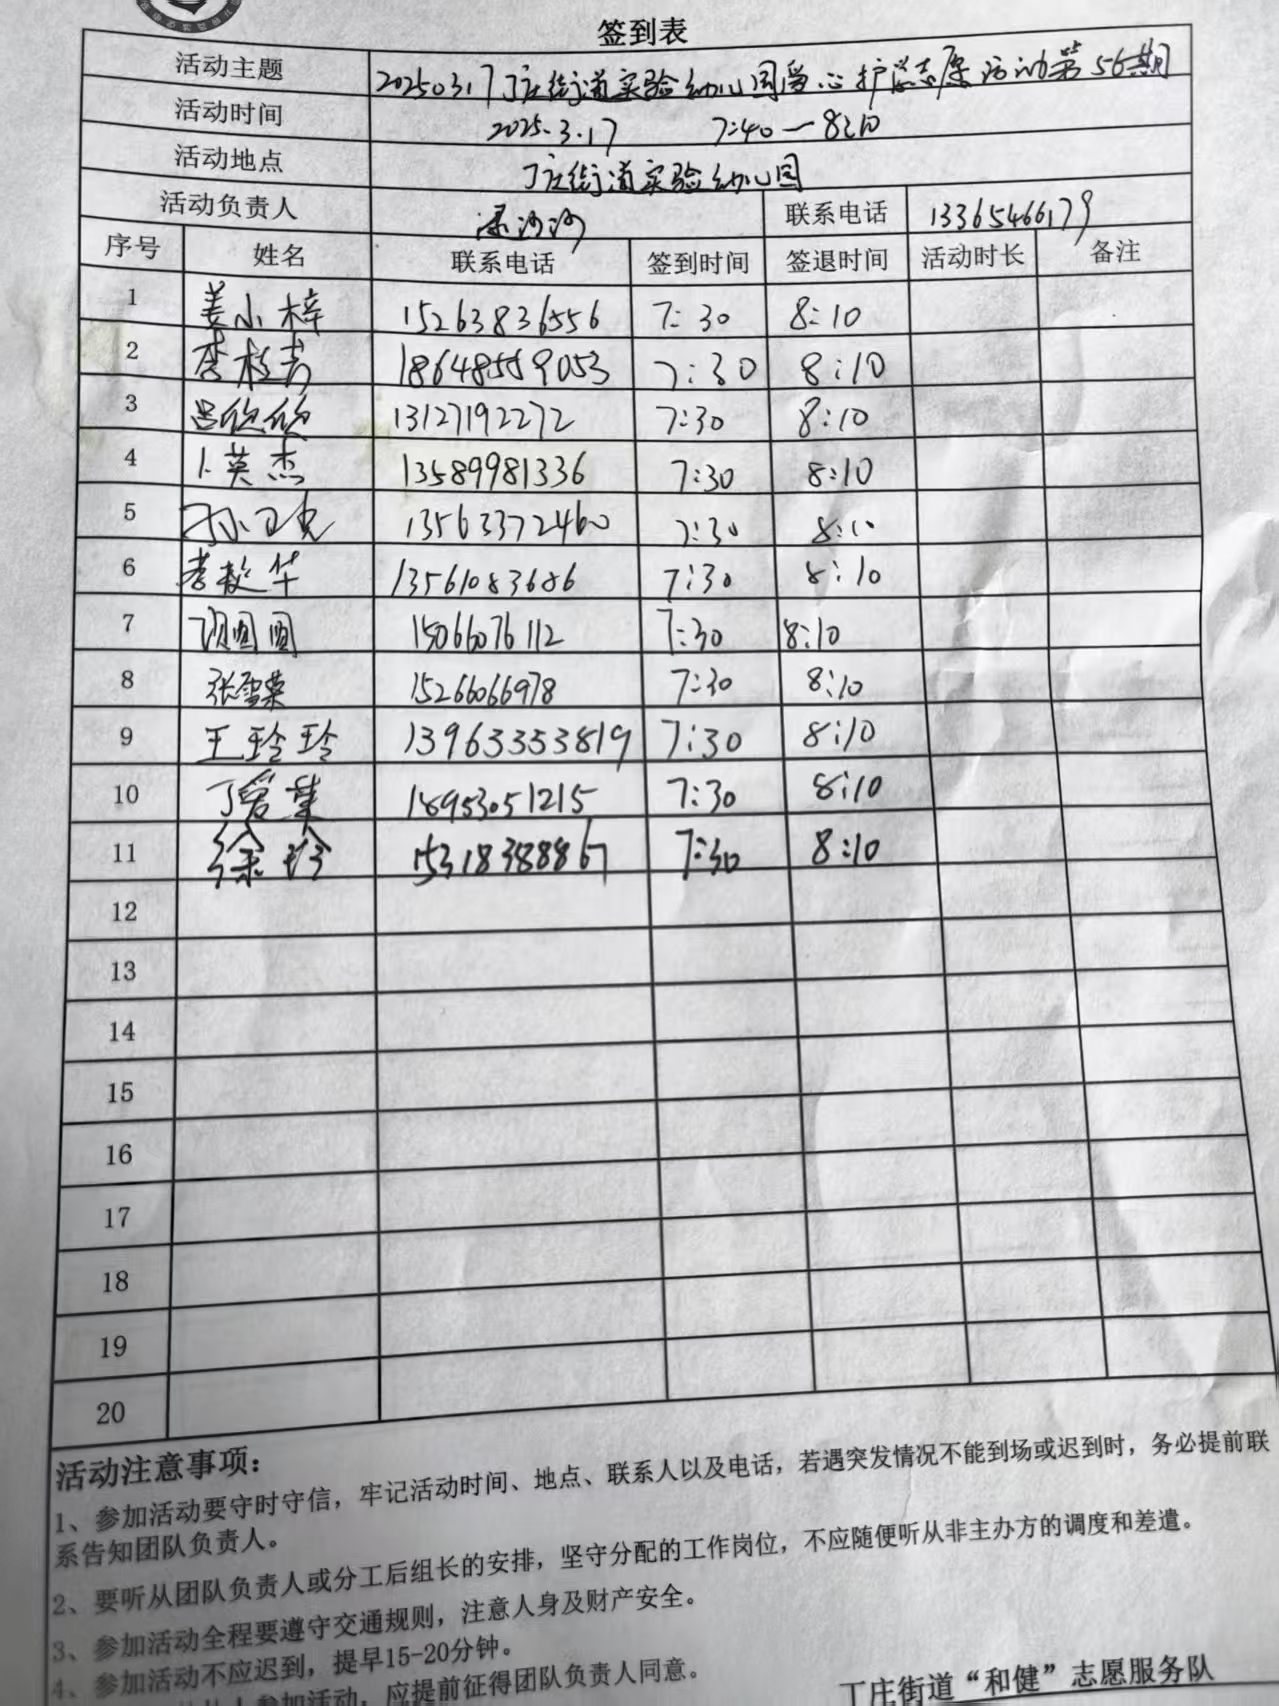 签到表
活动主题 20250317丁庄街道实验幼儿园爱心护学志愿活动第56期
活动时间 2025.3.17 7:40—8:10
活动地点 丁庄街道实验幼儿园
活动负责人 梁沙沙 联系电话 13365466179
序号 姓名 联系电话 签到时间 签退时间 活动时长 备注
1 姜小梓 15263836556 7:30 8:10
2 李桂芳 18648559053 7:30 8:10
3 吕欣欣 13127192272 7:30 8:10
4 卜英杰 13589981336 7:30 8:10
5 孙卫 13563372460 7:30 8:10
6 李 华 13561083686 7:30 8:10
7 圆圆 15066076112 7:30 8:10
8 张雪 15266066978 7:30 8:10
9 王玲玲 13963353819 7:30 8:10
10 丁爱葉 18953051215 7:30 8:10
11 徐珍 15318388867 7:30 8:10
12
13
14
15
16
17
18
19
20
活动注意事项：
1、参加活动要守时守信，牢记活动时间、地点、联系人以及电话，若遇突发情况不能到场或迟到时，务必提前联
系告知团队负责人。
2、要听从团队负责人或分工后组长的安排，坚守分配的工作岗位，不应随便听从非主办方的调度和差遣。
3、参加活动全程要遵守交通规则，注意人身及财产安全。
4、参加活动不应迟到，提早15-20分钟。
人参加活动，应提前征得团队负责人同意。
丁庄街道“和健”志愿服务队